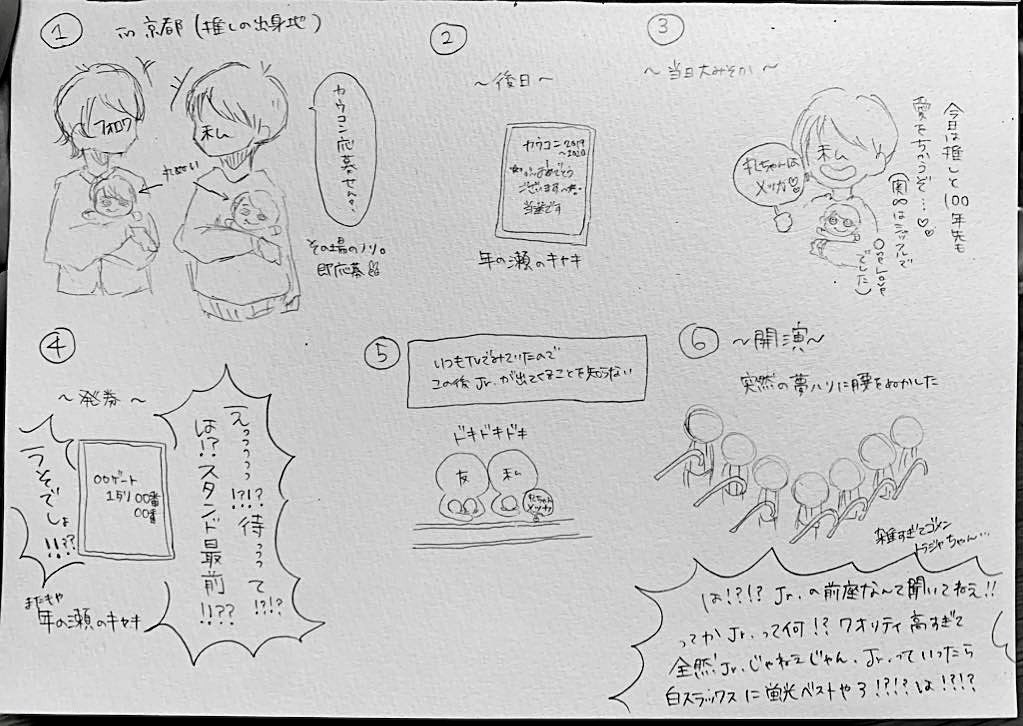 ①
in 京都(推しの出身地)
フォロワ
私
れぬい
カウコン応募せん?
その場のノリ。
即応募
②
〜後日〜
カウコン2019
〜2020
おめでとう
ございます
当選です
年の瀬のキャキ
③
〜当日大みそか〜
今日は推しと100年先も
愛をちかうぞ…♡♡
(関ジャニ∞はシャッフルで
One Love
でした)
私
れちゃんは
メッカ♡
④
〜発券〜
〇〇ゲート
1列 〇〇番
〇〇番
うそでしょ
!!??
えっっっっ!?!?
待っって!?!?
は!?スタンド最前!!??
またもや
年の瀬のキャキ
⑤
いつもTVでみていたので
この後Jr.が出てくることを知らない
ドキドキドキ
友
私
れちゃん
メッカ
⑥
〜開演〜
突然の夢ハリに腰をぬかした
雑すぎてゴメン
トラジャちゃん…
は!?!? Jr.の前座なんて聞いてねえ!!
ってか Jr.って何!? クオリティ高すぎて
全然Jr.じゃねえじゃん、Jr.っていったら
白スラックスに蛍光ベストやろ!?!?は!?!?